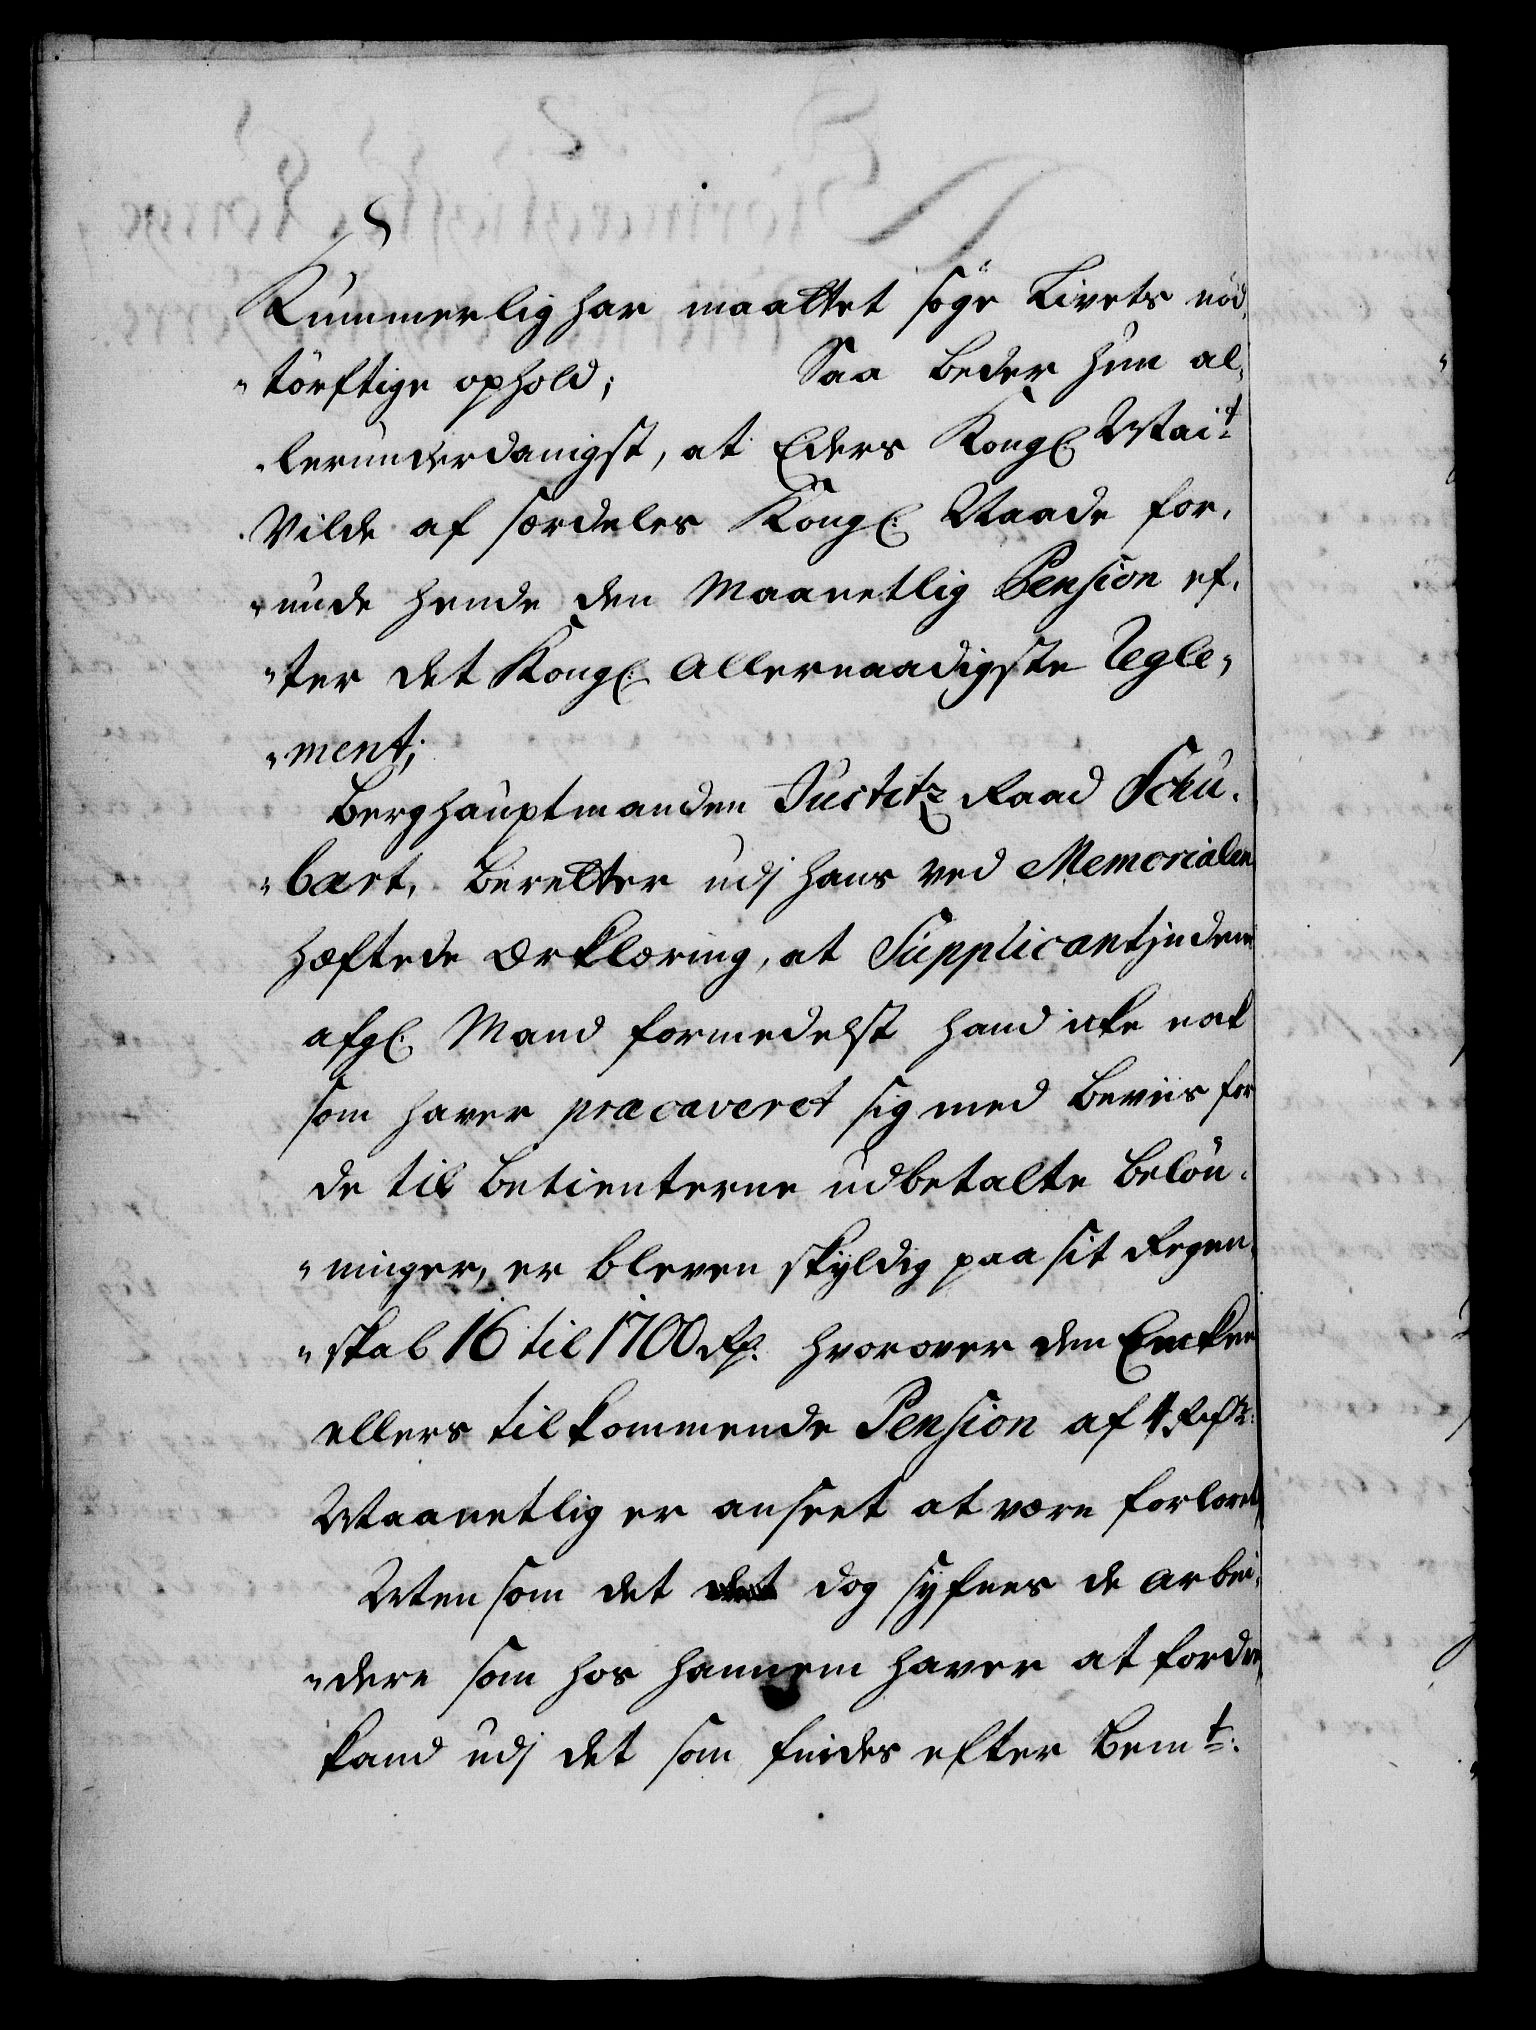 Kummerlig har maattet søge Livets nød,
"törftige ophold; Saa beder hun al,
"lerunderdanigst, at Eders Kongl Mait:
Vilde af særdeles Kongl: Naade for,
"unde hende den Maanetlig Pension ef,
"ter det Kongl: Allernaadigste Regle,
"ment;
Berghauptmanden Justitz Raad Schu,
"bart, beretter udj hans ved Memorialen
hæftede Erklæring, at Supplicantindens
afgl: Mand formedelst hand icke nok
som haver præcaveret sig med beviis for
de til betienterne udbetalte belön,
"ninger, er bleven skyldig paa sit Regen,
"skab 16 til 1700 Rd. hvorover den Encken
ellers tilkommende Pension af 4 Rdr:
Maanetlig er anseet at være forloret,
Men som det dog synes de arbei,
"dere som hos hannem haver at fordre,
kand udj det som findes efter bemt: